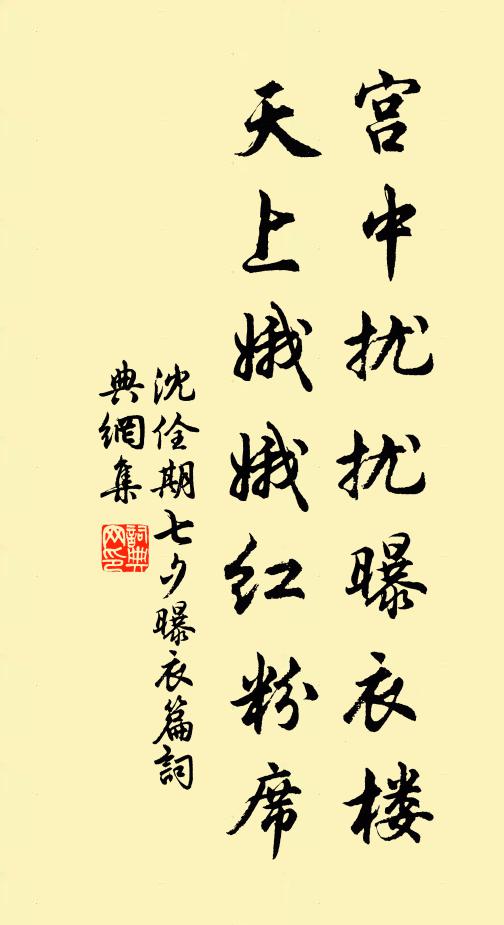 宫中扰扰曝衣楼
天上娥娥红粉席
沈佺期七夕曝衣篇詞
典網集
詞典网印